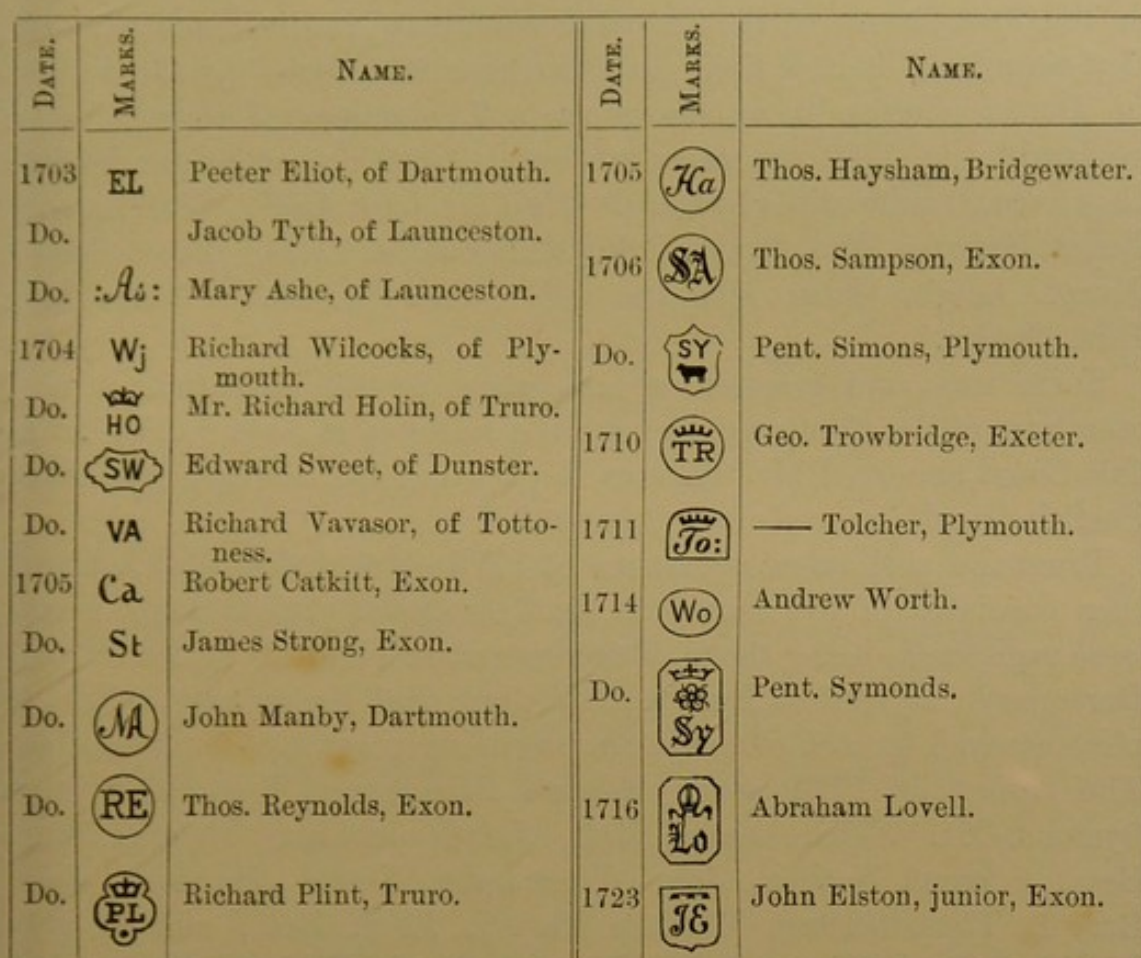 DATE. MARKS. NAME.
1703 EL Peeter Eliot, of Dartmouth.
Do. Jacob Tyth, of Launceston.
Do. :As: Mary Ashe, of Launceston.
1704 Wj Richard Wilcocks, of Ply-
mouth.
Do. HO Mr. Richard Holin, of Truro.
Do. SW Edward Sweet, of Dunster.
Do. VA Richard Vavasor, of Totto-
ness.
1705 Ca Robert Catkitt, Exon.
Do. St James Strong, Exon.
Do. MA John Manby, Dartmouth.
Do. RE Thos. Reynolds, Exon.
Do. PL Richard Plint, Truro.
DATE. MARKS. NAME.
1705 Ha Thos. Haysham, Bridgewater.
1706 SA Thos. Sampson, Exon.
Do. SY Pent. Simons, Plymouth.
1710 TR Geo. Trowbridge, Exeter.
1711 To: —— Tolcher, Plymouth.
1714 Wo Andrew Worth.
Do. Sy Pent. Symonds.
1716 Lo Abraham Lovell.
1723 JE John Elston, junior, Exon.